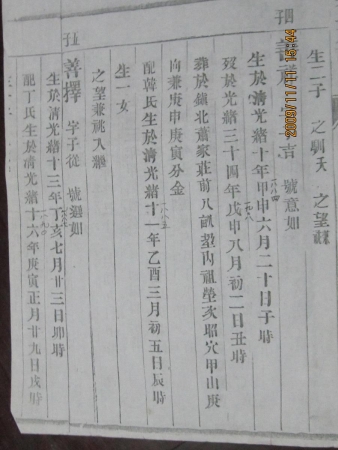 生二子 之興夭 之望
四子 善 吉 號意如
生於清光緒十年甲申六月二十日子時
一八八四
歿於光緒三十四年戊申八月初二日丑時
一九〇八
葬於鎮北蕭家莊前八畝塋內祖塋亥昭穴甲山庚
向兼庚申庚寅分金
配韓氏生於清光緒十一年乙酉三月初五日辰時
一八八五
生一女
之望兼祧入繼
五子 善擇 字子從 號迴如
生於清光緒十三年丁亥七月廿三日卯時
配丁氏生於清光緒十六年庚寅正月廿九日戌時
2009/11/11 15:44